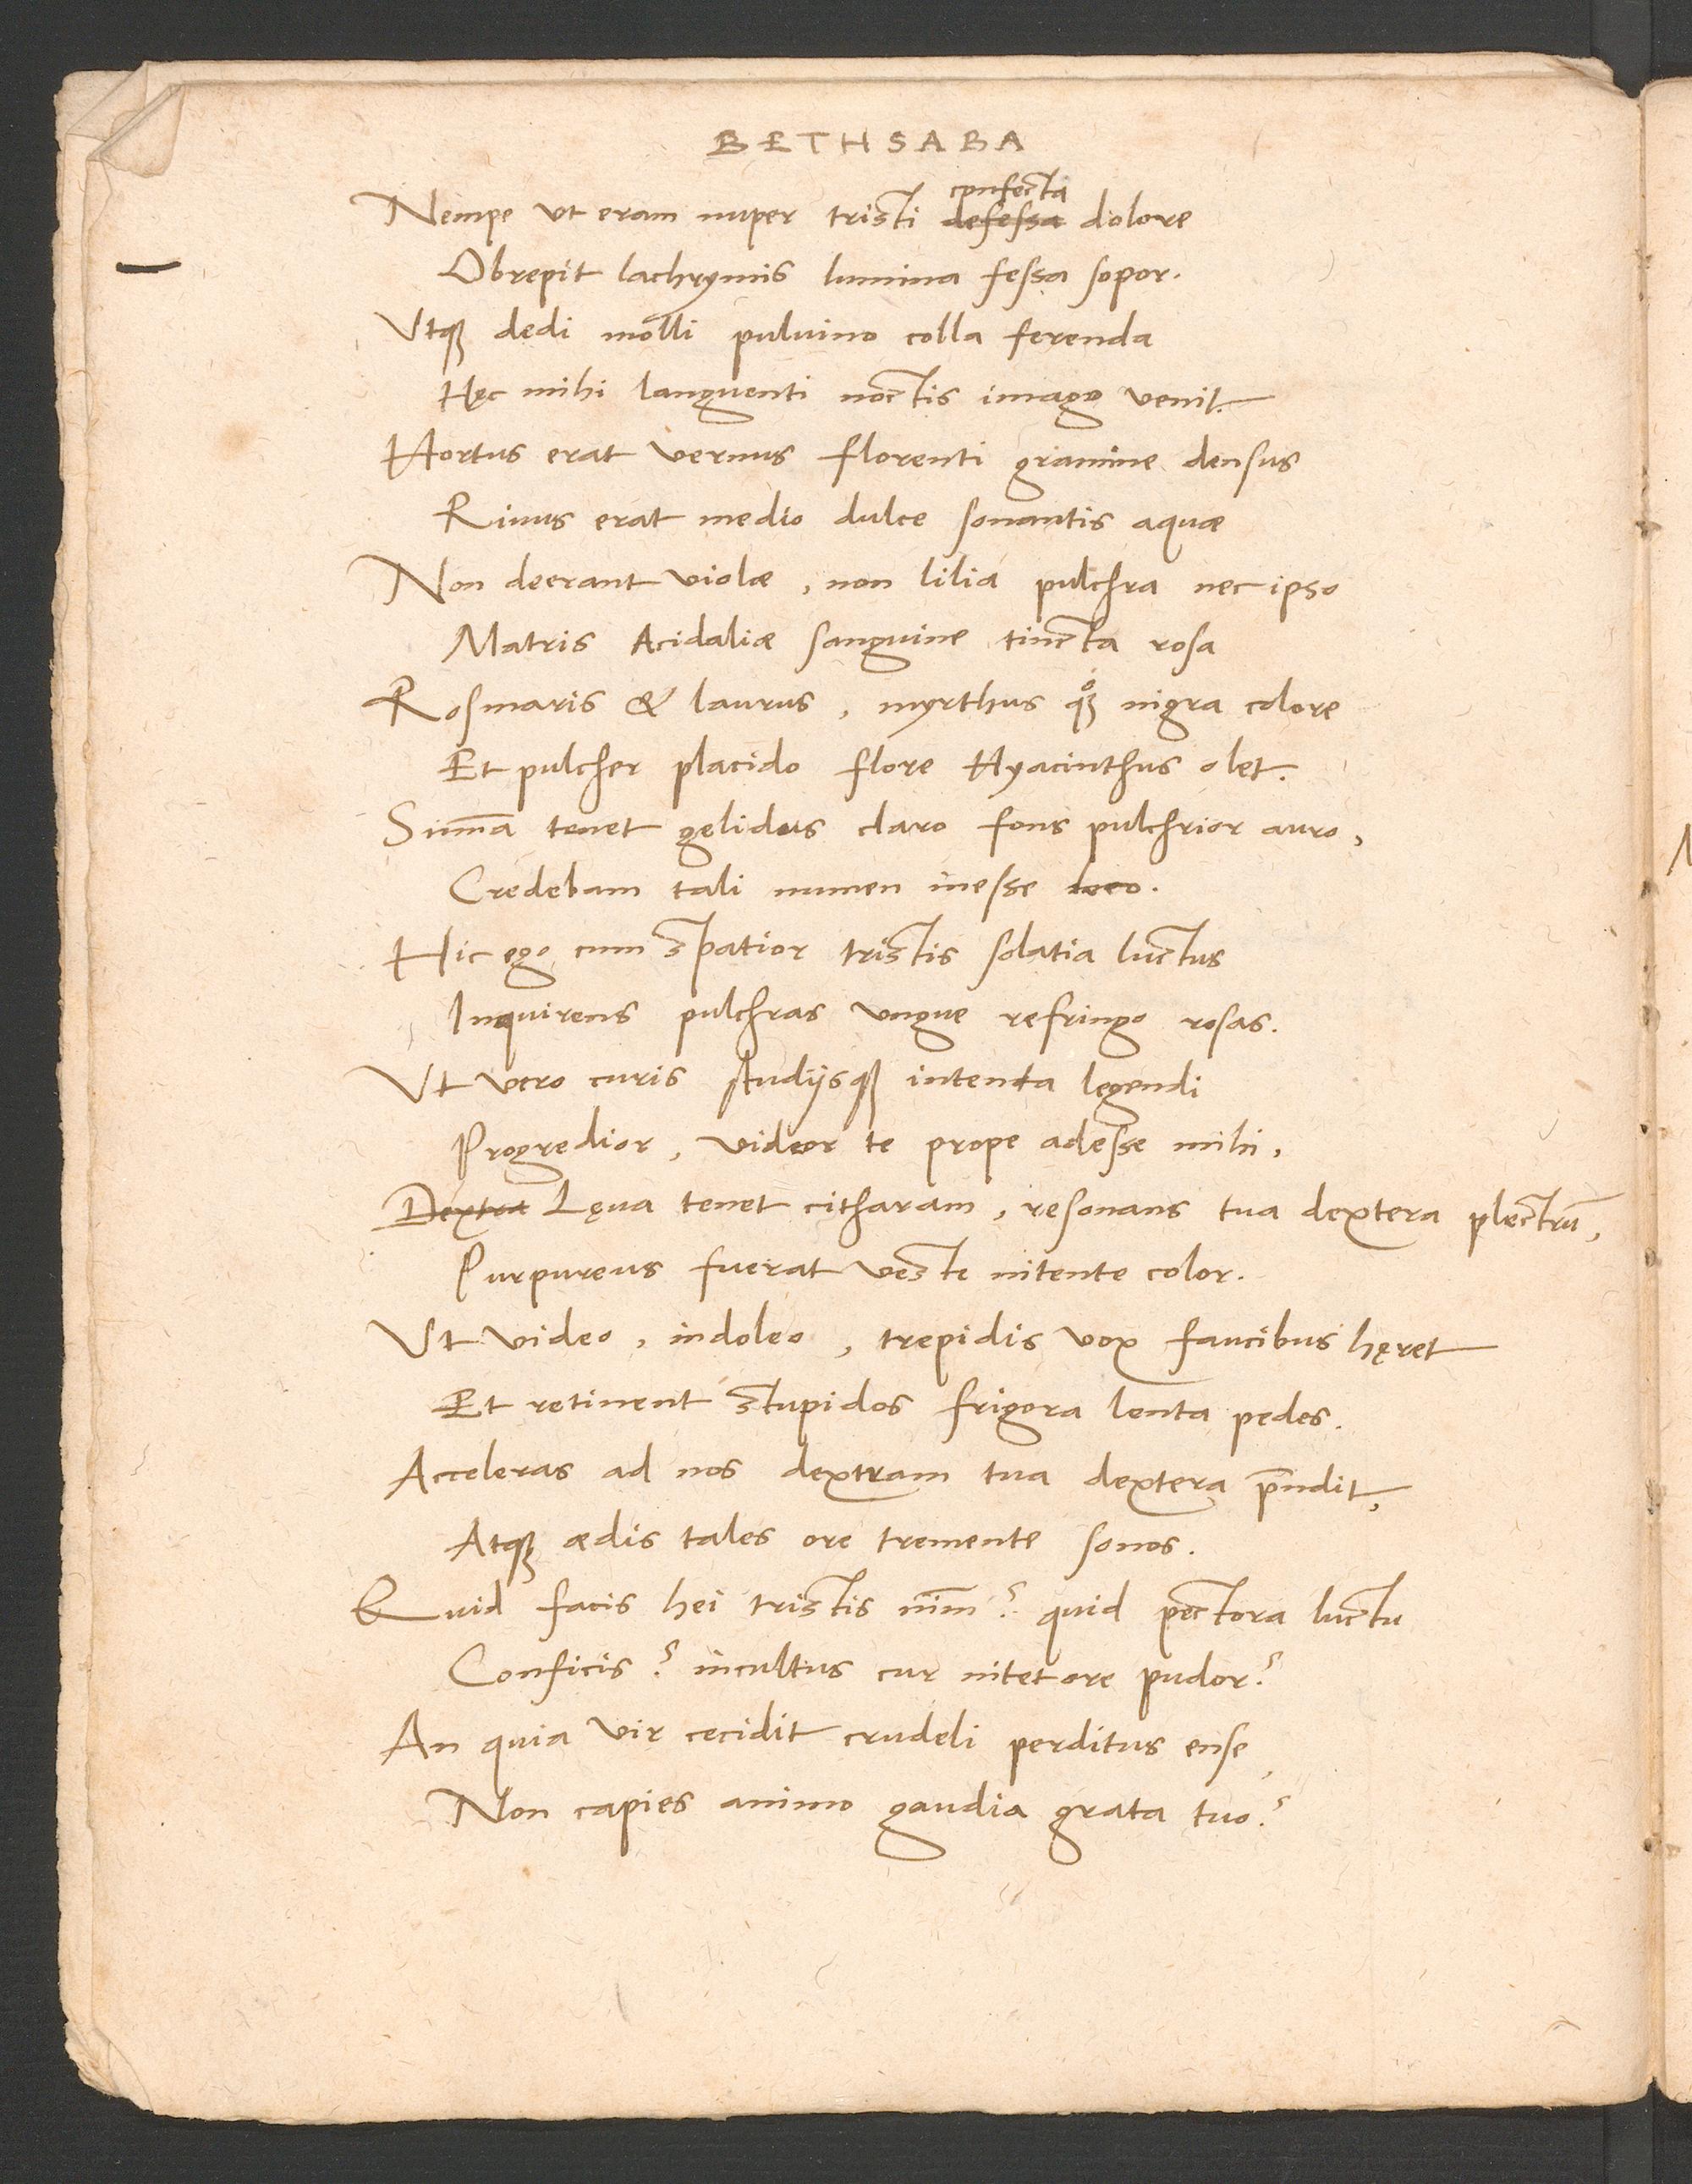 BETHSABA
confecta
Nempe vt eram nuper tristi defessa dolore
Obrepit lachrymis lumina fessa sopor.
Vtqꝫ dedi molli puluino colla ferenda
Hęc mihi languenti noctis imago venit.
Hortus erat vernus florenti gramine densus
Riuus erat medio dulce sonantis aquæ
Non deerant violæ, non lilia pulchra nec ipso
Matris Acidaliæ sanguine tincta rosa
Rosmaris & laurus, myrthus qꝫ nigra colore
Et pulcher placido flore Hyacinthus olet.
Sum̄a tenet gelidus claro fons pulchrior auro,
Credebam tali numen inesse loco.
Hic ego cum spatior tristis solatia luctus
Inquirens pulchras vngue refringo rosas.
Vt vero curis studijsqꝫ intenta legendi
Progredior, videor te prope adesse mihi,
Dextra Lęua tenet citharam, resonans tua dextera plectrū,
Purpureus fuerat veste nitente color.
Vt video, indoleo, trepidis vox faucibus hęret
Et retinent stupidos frigora lenta pedes.
Acceleras ad nos dextram tua dextera p̄ndit,
Atqꝫ ædis tales ore tremente sonos.
Quid facis hei tristis nim̄? quid pectora luctu
Conficis? incultus cur nitet ore pudor?
An quia vir cecidit crudeli perditus ense,
Non capies animo gaudia grata tuo?